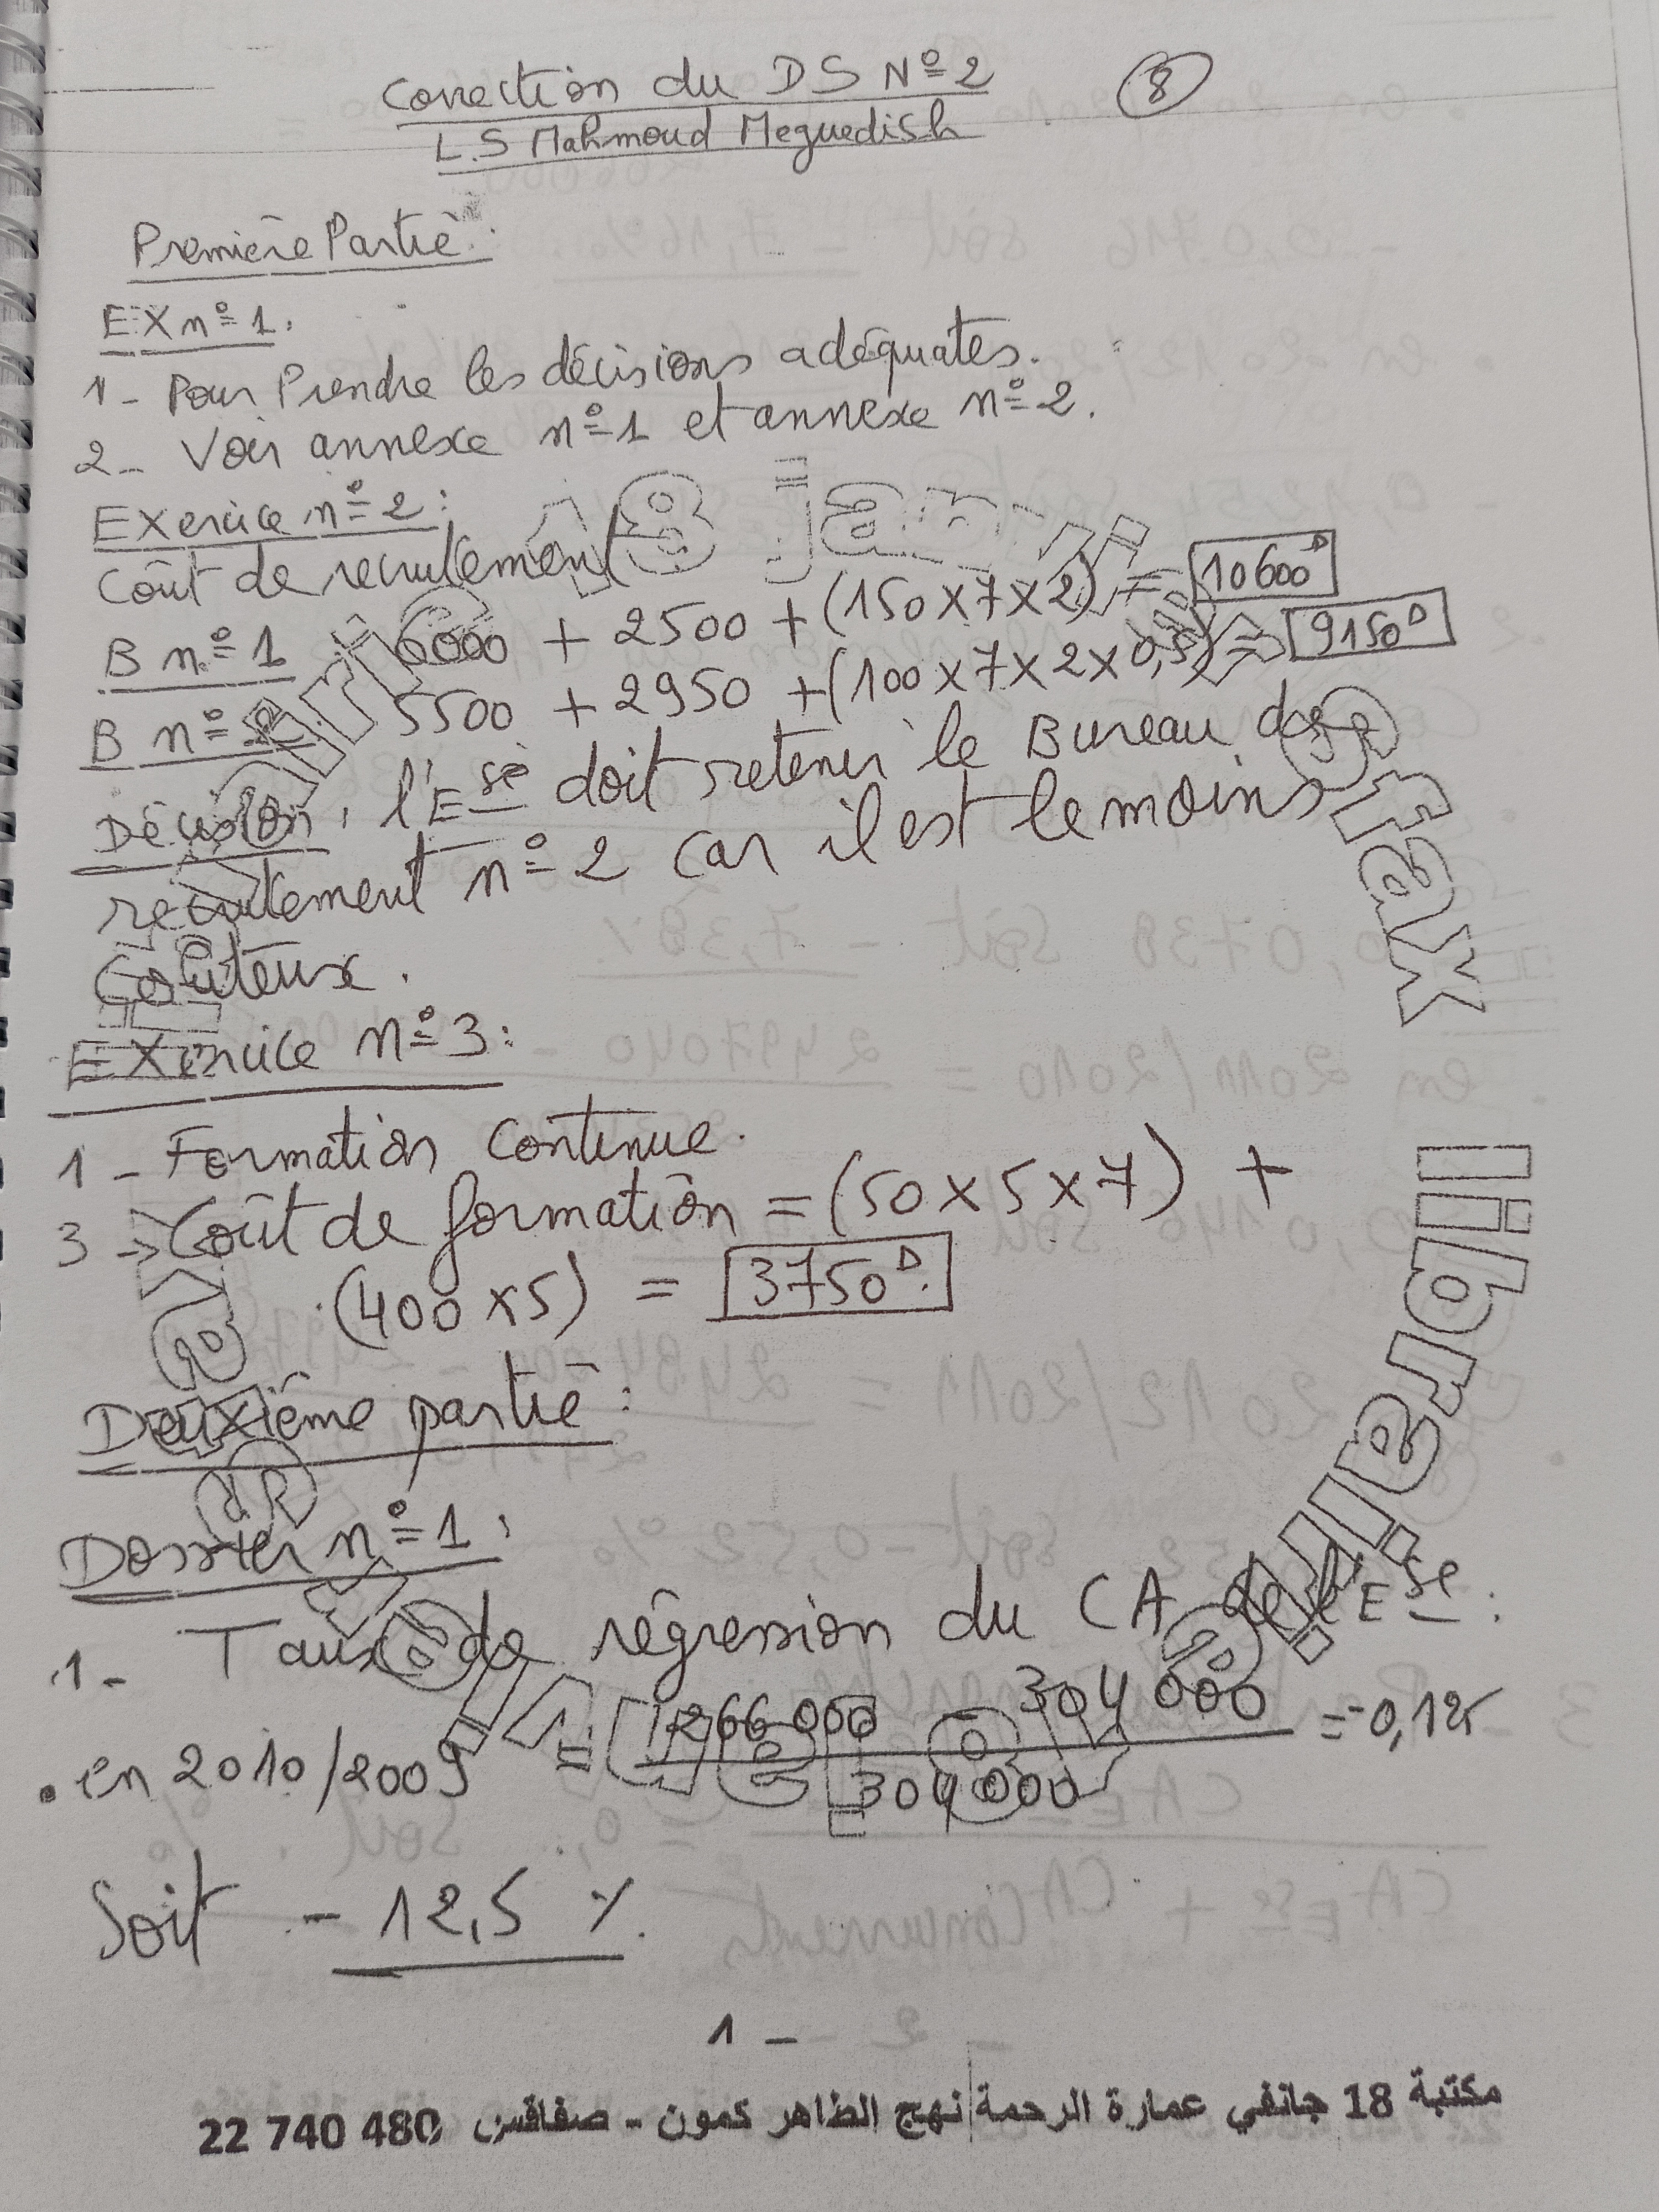 Correction du DS Nº2
8
L.S Mahmoud Meguedish
Première Partie :
EX nº1 :
1- Pour Prendre les décisions adéquates.
2- Voir annexe nº1 et annexe nº2.
Exercice nº2 :
Coût de recrutement
B nº1 6000 + 2500 + (150x7x2) = 10600D
B nº2 5500 + 2950 + (100x7x2x0,5) = 9150D
Décision : l'Ese doit retenir le Bureau de
recrutement nº2 car il est le moins
Coûteux.
Exercice nº3 :
1- Formation Continue.
3 -> Coût de formation = (50x5x7) +
(400x5) = 3750D.
Deuxième partie :
Dossier nº1 :
1- Taux de régression du CA de l'Ese :
. en 2010/2009 = 266 000 - 304 000 / 304 000 = -0,125
Soit -12,5 %.
1 -
مكتبة 18 جانفي عمارة الرحمة نهج الطاهر كمون - صفاقس 22 740 480